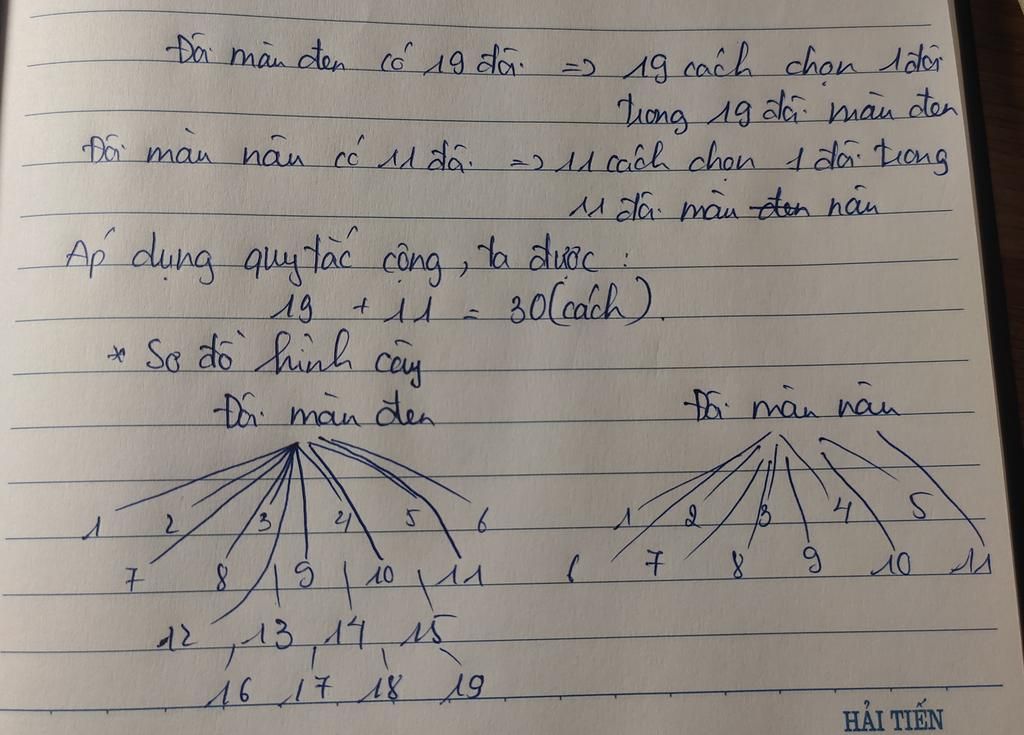 Đôi màu đen có 19 đôi => 19 cách chọn 1 đôi
trong 19 đôi màu đen
Đôi màu nâu có 11 đôi => 11 cách chọn 1 đôi trong
11 đôi màu đen nâu
Áp dụng quy tắc cộng, ta được :
19 + 11 = 30 (cách).
* Sơ đồ hình cây
Đôi màu đen Đôi màu nâu
1 2 3 4 5 6 1 2 3 4 5
7 8 9 10 11 6 7 8 9 10 11
12 13 14 15
16 17 18 19
HẢI TIẾN